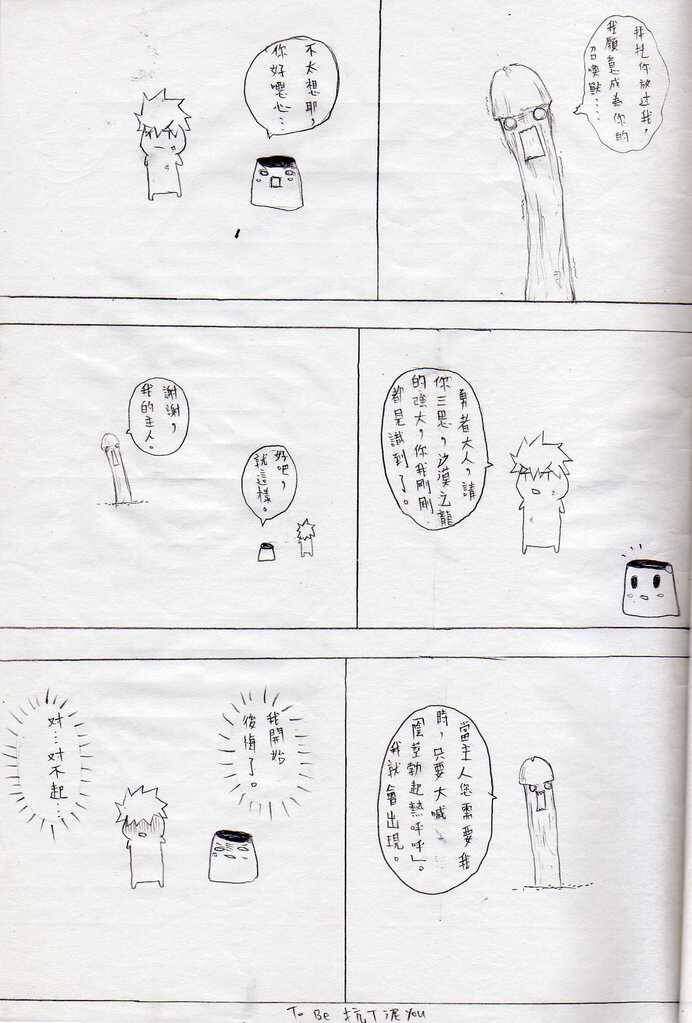 拜託你放过我，
我願意成為你的
召喚獸……
不太想耶，
你好噁心…
勇者大人，請
你三思，沙漠之龍
的強大，你我剛剛
都是識到了。
好吧，
就這樣。
謝謝，
我的主人。
當主人您需要我
時，只要大喊
「陰莖勃起熱呼呼」。
我就會出現。
我開始
後悔了。
对…对不起…
To Be 坑下泥 You